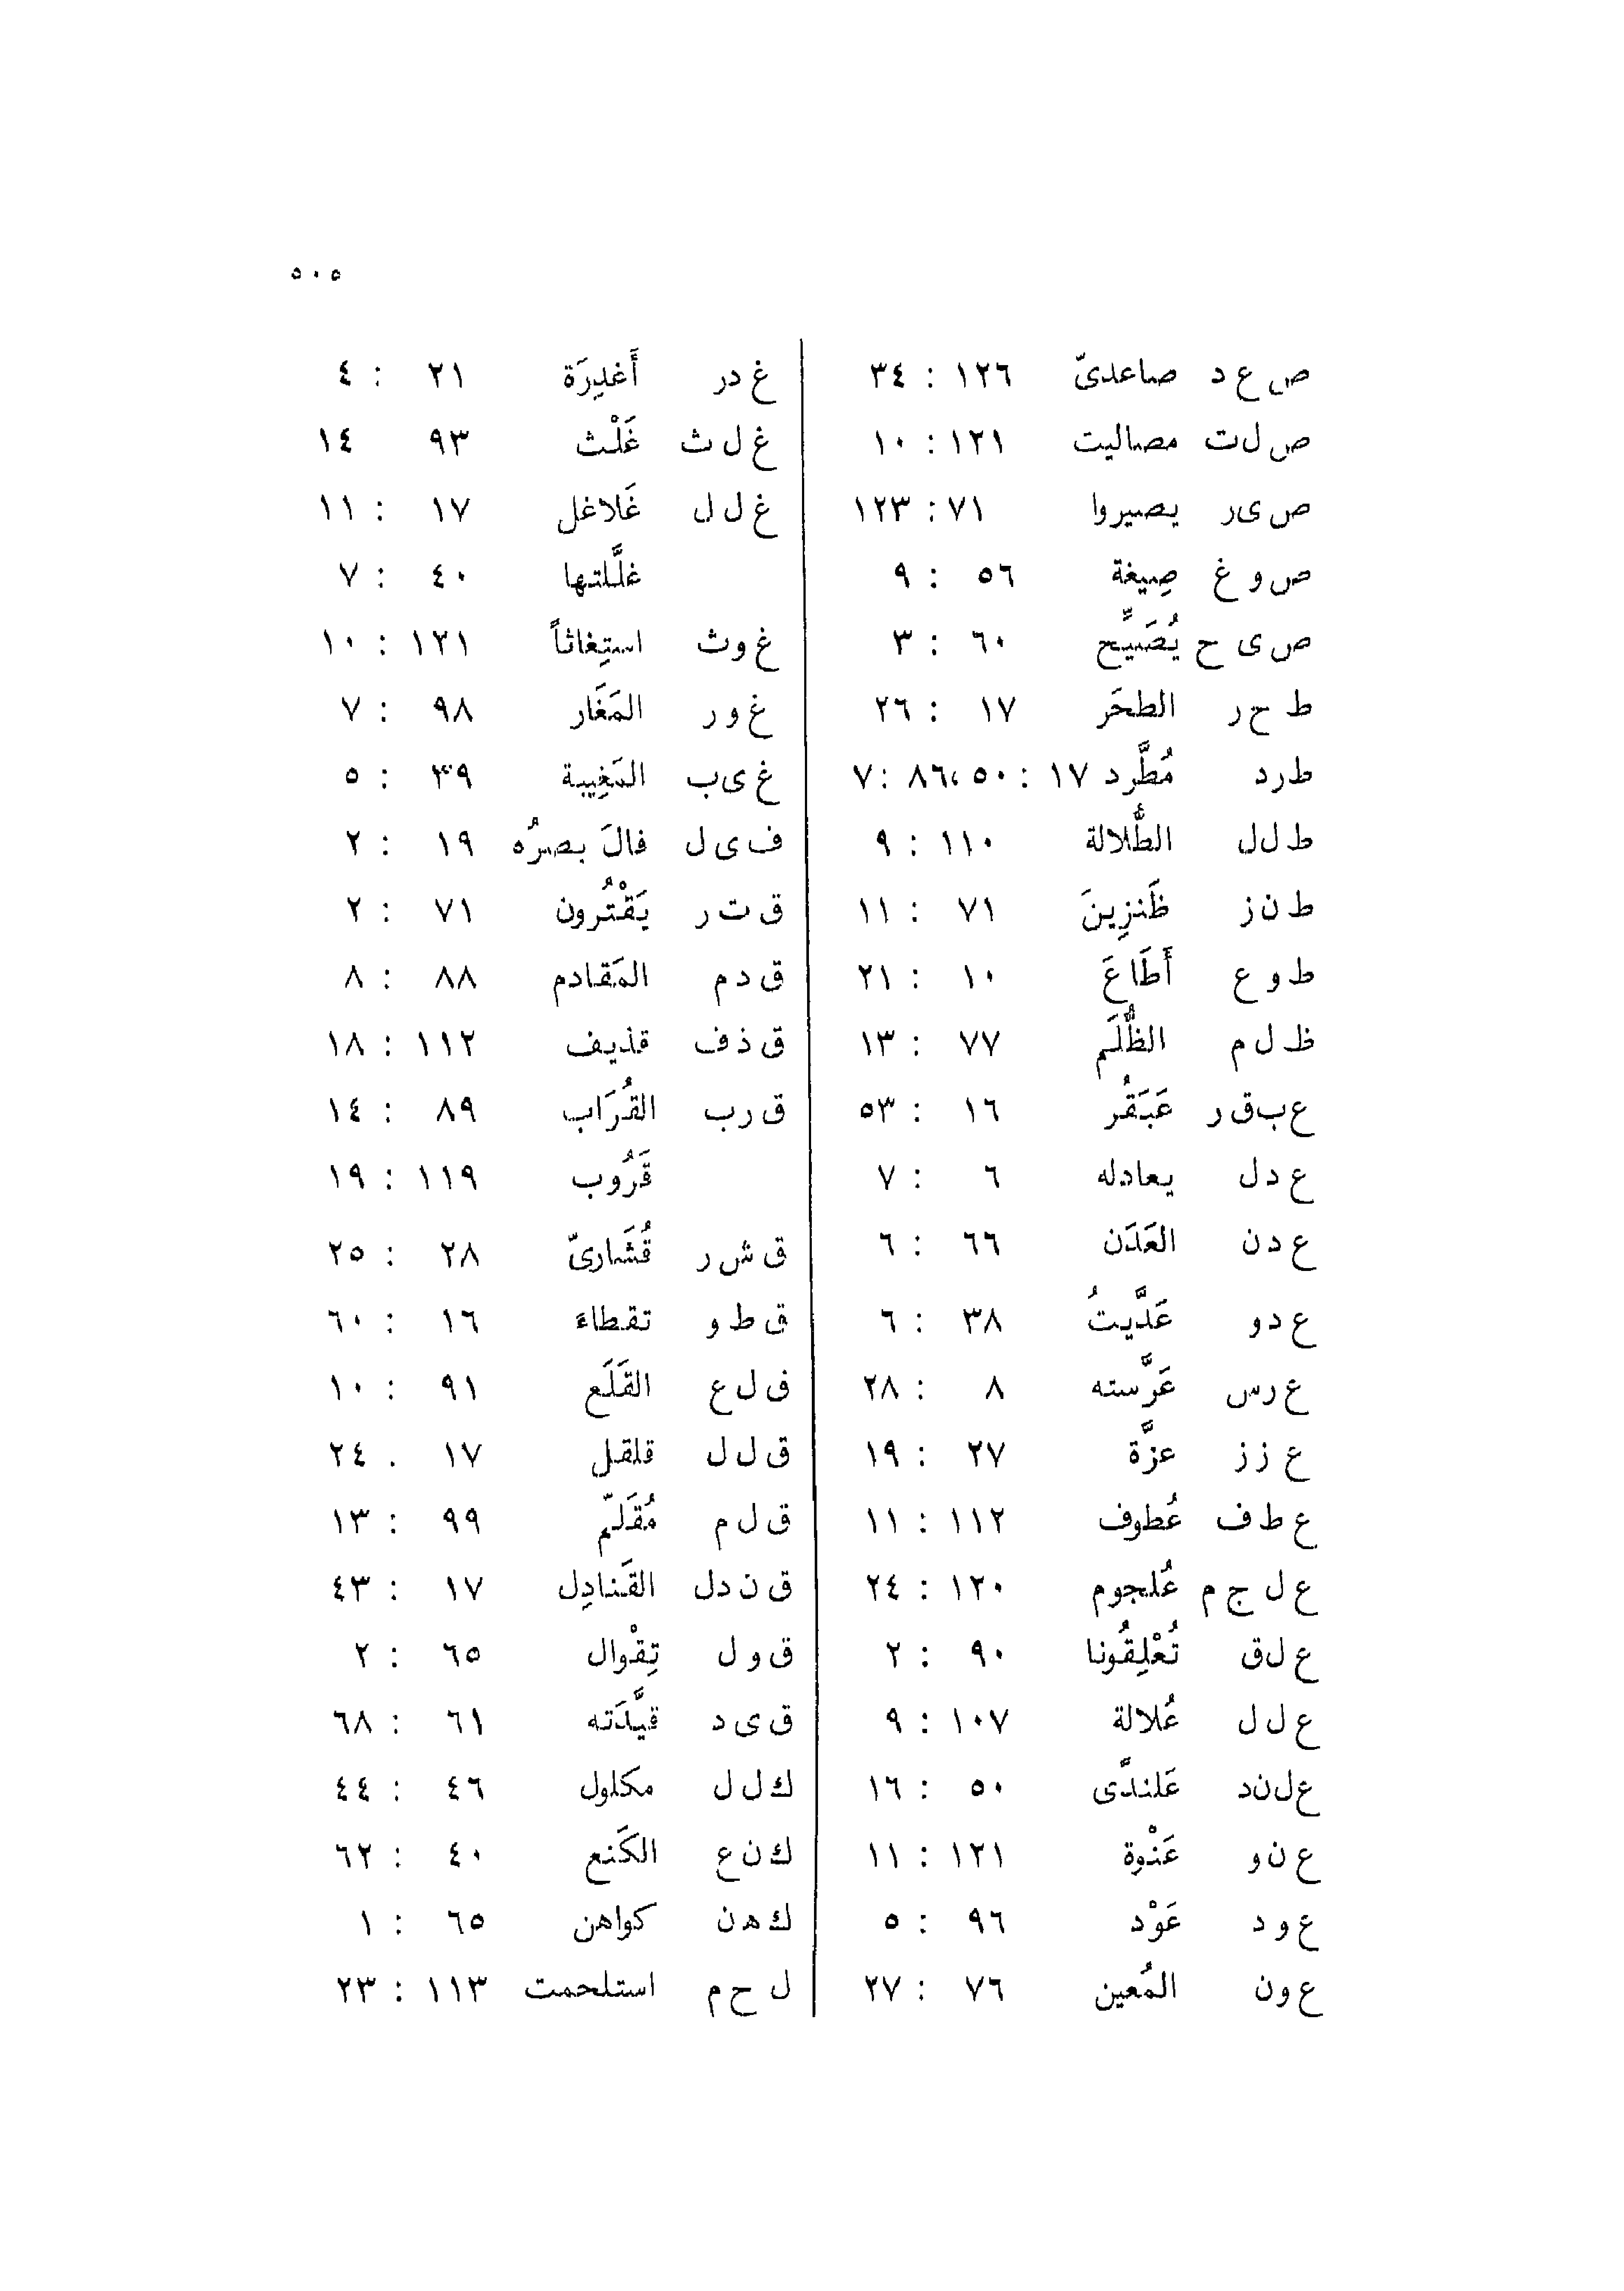 ٥٠٥
ص ع د صاعدىّ ١٢٦ : ٣٤
ص ل ت مصاليت ١٢١ : ١٠
ص ى ر يصيروا ٧١ : ١٢٣
ص و غ صِيغة ٥٦ : ٩
ص ى ح يُصَيِّح ٦٠ : ٣
ط ح ر الطحَر ١٧ : ٢٦
ط ر د مُطَّرد ١٧ : ٥٠ ، ٨٦ : ٧
ط ل ل الطُّلالة ١١٠ : ٩
ط ن ز طَنزِينَ ٧١ : ١١
ط و ع أَطَاعَ ١٠ : ٢١
ظ ل م الظُّلَم ٧٧ : ١٣
ع ب ق ر عَبَقُر ١٦ : ٥٣
ع د ل يعادله ٦ : ٧
ع د ن العَدَن ٦٦ : ٦
ع د و عَدَّيتُ ٣٨ : ٦
ع ر س عَرَّسته ٨ : ٢٨
ع ز ز عزَّة ٢٧ : ١٩
ع ط ف عُطوف ١١٢ : ١١
ع ل ج م عُلجوم ١٢٠ : ٢٤
ع ل ق تُعْلِقُونا ٩٠ : ٢
ع ل ل عُلالة ١٠٧ : ٩
ع ل ن د عَلندًى ٥٠ : ١٦
ع ن و عَنْوة ١٢١ : ١١
ع و د عَوْد ٩٦ : ٥
ع و ن المُعين ٧٦ : ٢٧
غ د ر أَغدِرَة ٢١ : ٤
غ ل ث غَلْث ٩٣ ١٤
غ ل ل غَلاغل ١٧ : ١١
غلَّلتها ٤٠ : ٧
غ و ث استِغاثاً ١٢١ : ١٠
غ و ر المَغَار ٩٨ : ٧
غ ى ب المَغِيبة ٣٩ : ٥
ف ى ل فالَ بصرُه ١٩ : ٢
ق ت ر يَقْتُرون ٧١ : ٢
ق د م المَقادم ٨٨ : ٨
ق ذ ف قذيف ١١٢ : ١٨
ق ر ب القُرَاب ٨٩ : ١٤
قَرُوب ١١٩ : ١٩
ق ش ر قُشَارىّ ٢٨ : ٢٥
ق ط و تقطاء ١٦ : ٦٠
ق ل ع القَلَع ٩١ : ١٠
ق ل ل قلقل ١٧ . ٢٤
ق ل م مُقَلّم ٩٩ : ١٣
ق ن د ل القَنادِل ١٧ : ٤٣
ق و ل تِقْوال ٦٥ : ٢
ق ى د قيَّدَته ٦١ : ٦٨
ك ل ل مكلول ٤٦ : ٤٤
ك ن ع الكَنع ٤٠ : ٦٢
ك ه ن كواهن ٦٥ : ١
ل ح م استلحمت ١١٣ : ٢٣